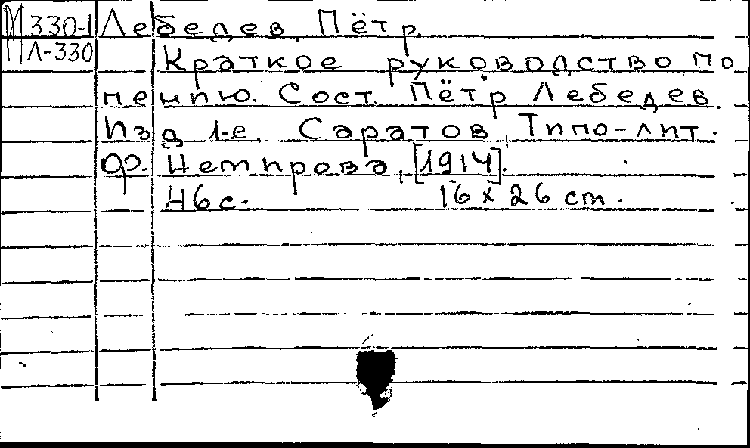 М 330-1 Лебедев, Пётр.
Л-330 Краткое руководство по
пению. Сост. Пётр Лебедев.
Изд. 1-е. Саратов, Типо-лит.
Ф. Немирова, [1914].
46 с. 16 x 26 cm.